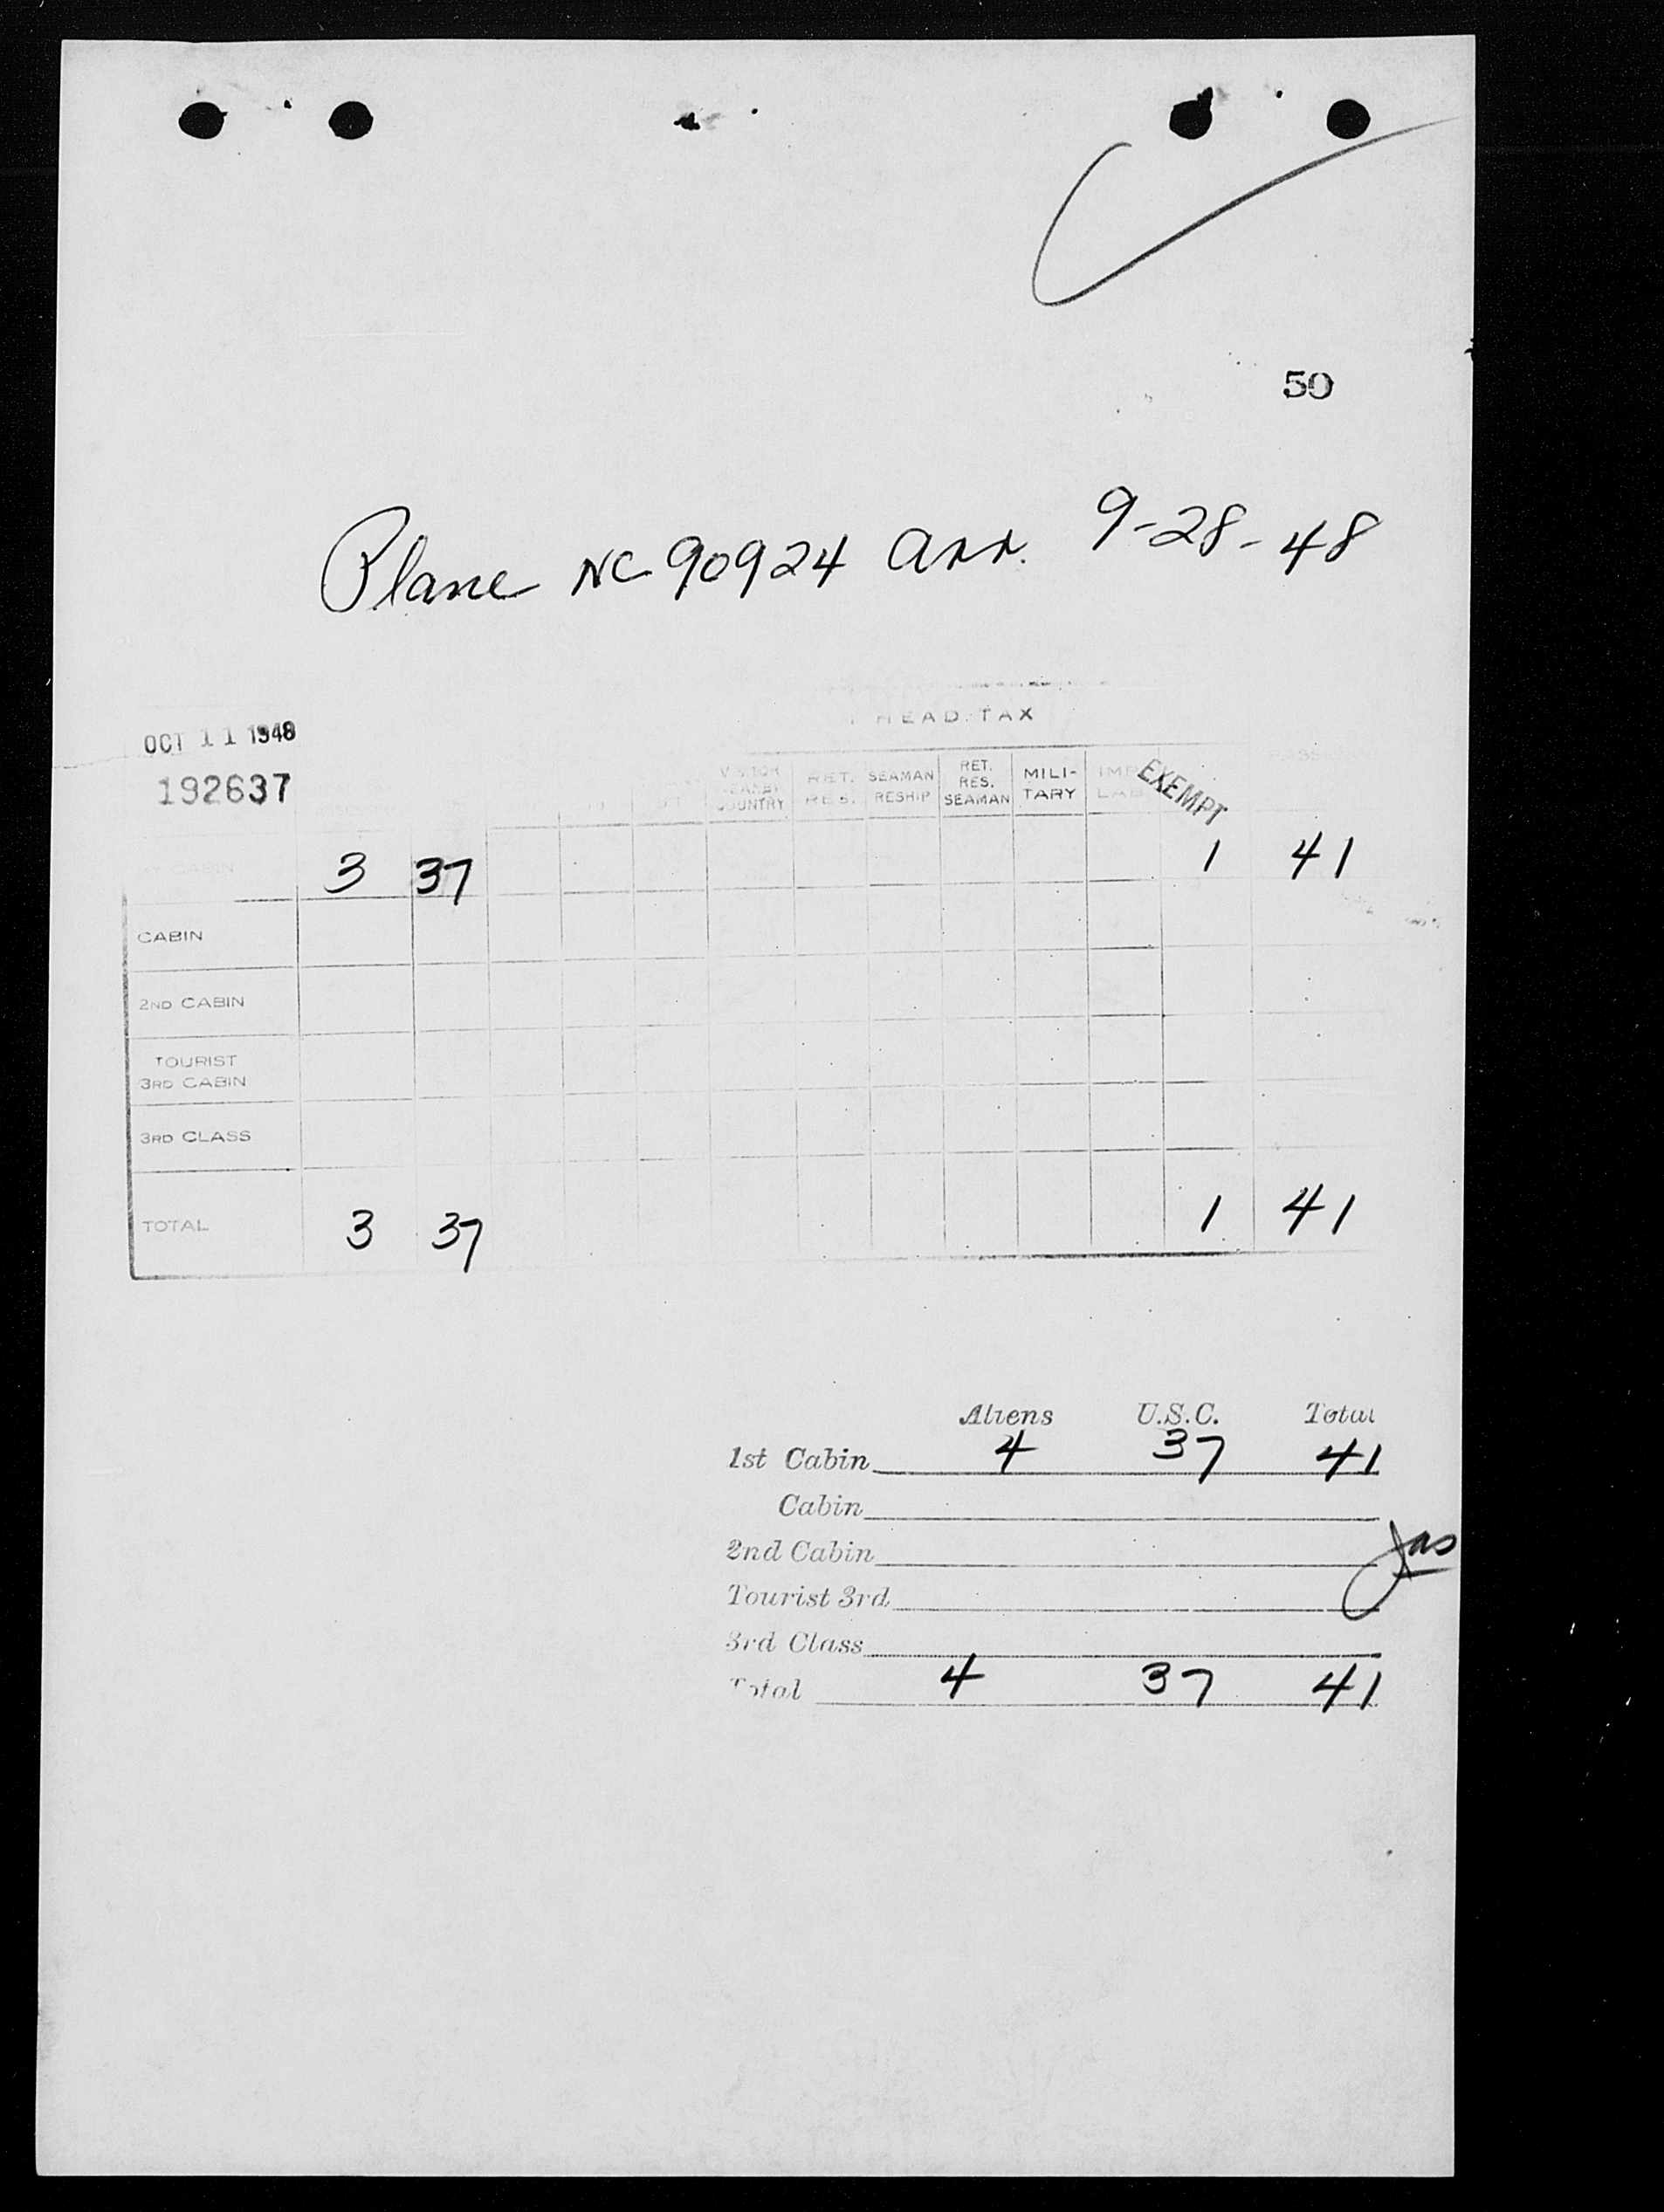 50
Plane NC 90924 arr. 9-28-48
HEAD TAX
OCT 11 1948
192637
VISITOR NEARBY COUNTRY RET. RES. SEAMAN RESHIP RET. RES. SEAMAN MILI-TARY EXEMPT
CABIN 3 37 1 41
CABIN
2ND CABIN
TOURIST
3RD CABIN
3RD CLASS
TOTAL 3 37 1 41
Aliens U.S.C. Total
1st Cabin 4 37 41
Cabin
2nd Cabin
Jas
Tourist 3rd
3rd Class
Total 4 37 41